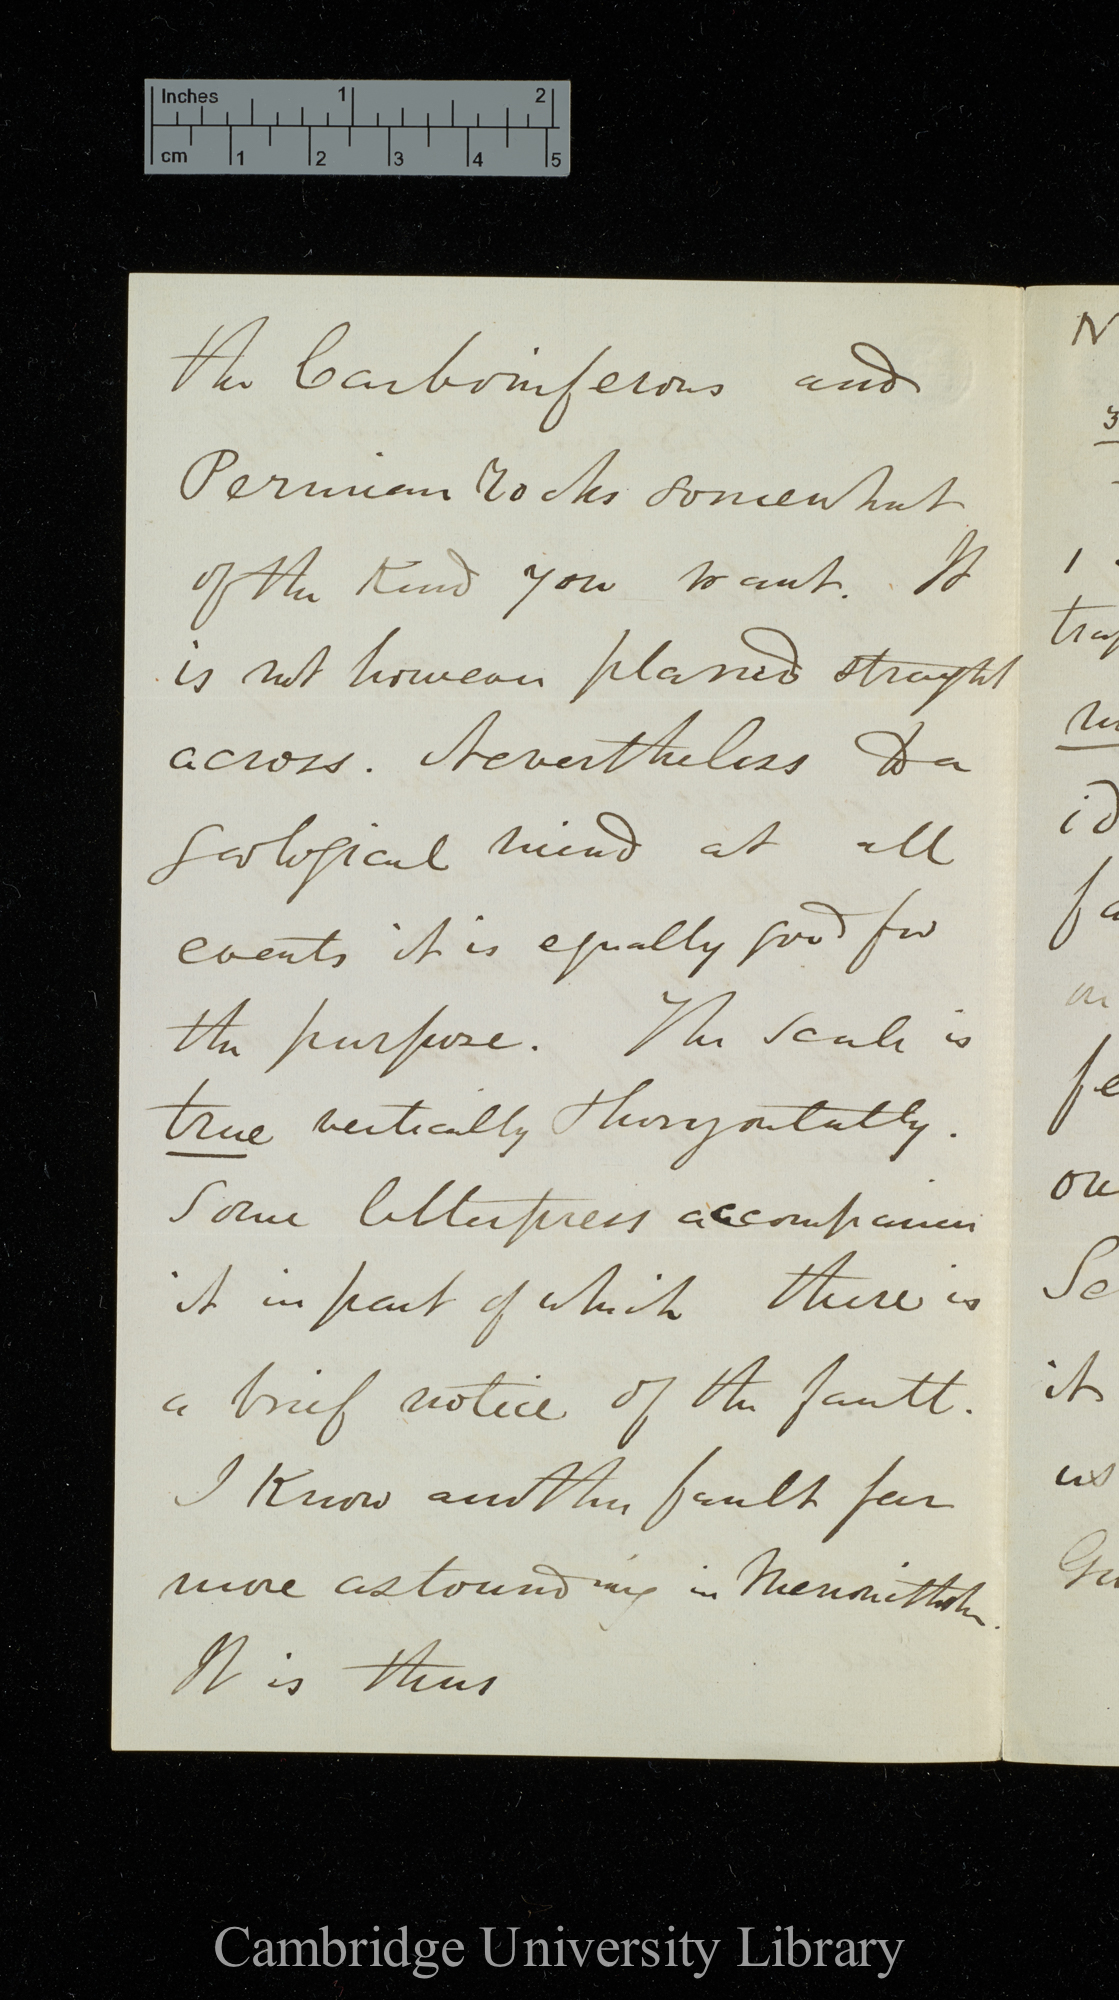 Inches 1 2
cm 1 2 3 4 5
the Carboniferous and
Permian rocks somewhat
of the kind you want. It
is not however planed straight
across. Nevertheless to a
geological mind at all
events it is equally good for
the purpose. The scale is
true vertically & horizontally.
Some letterpress accompanies
it in part of which there is
a brief notice of the fault.
I know another fault far
more astounding in Merionethsh.
It is thus
N
3
1
id
fa
on
fe
on
Sc
it
us
Cambridge University Library